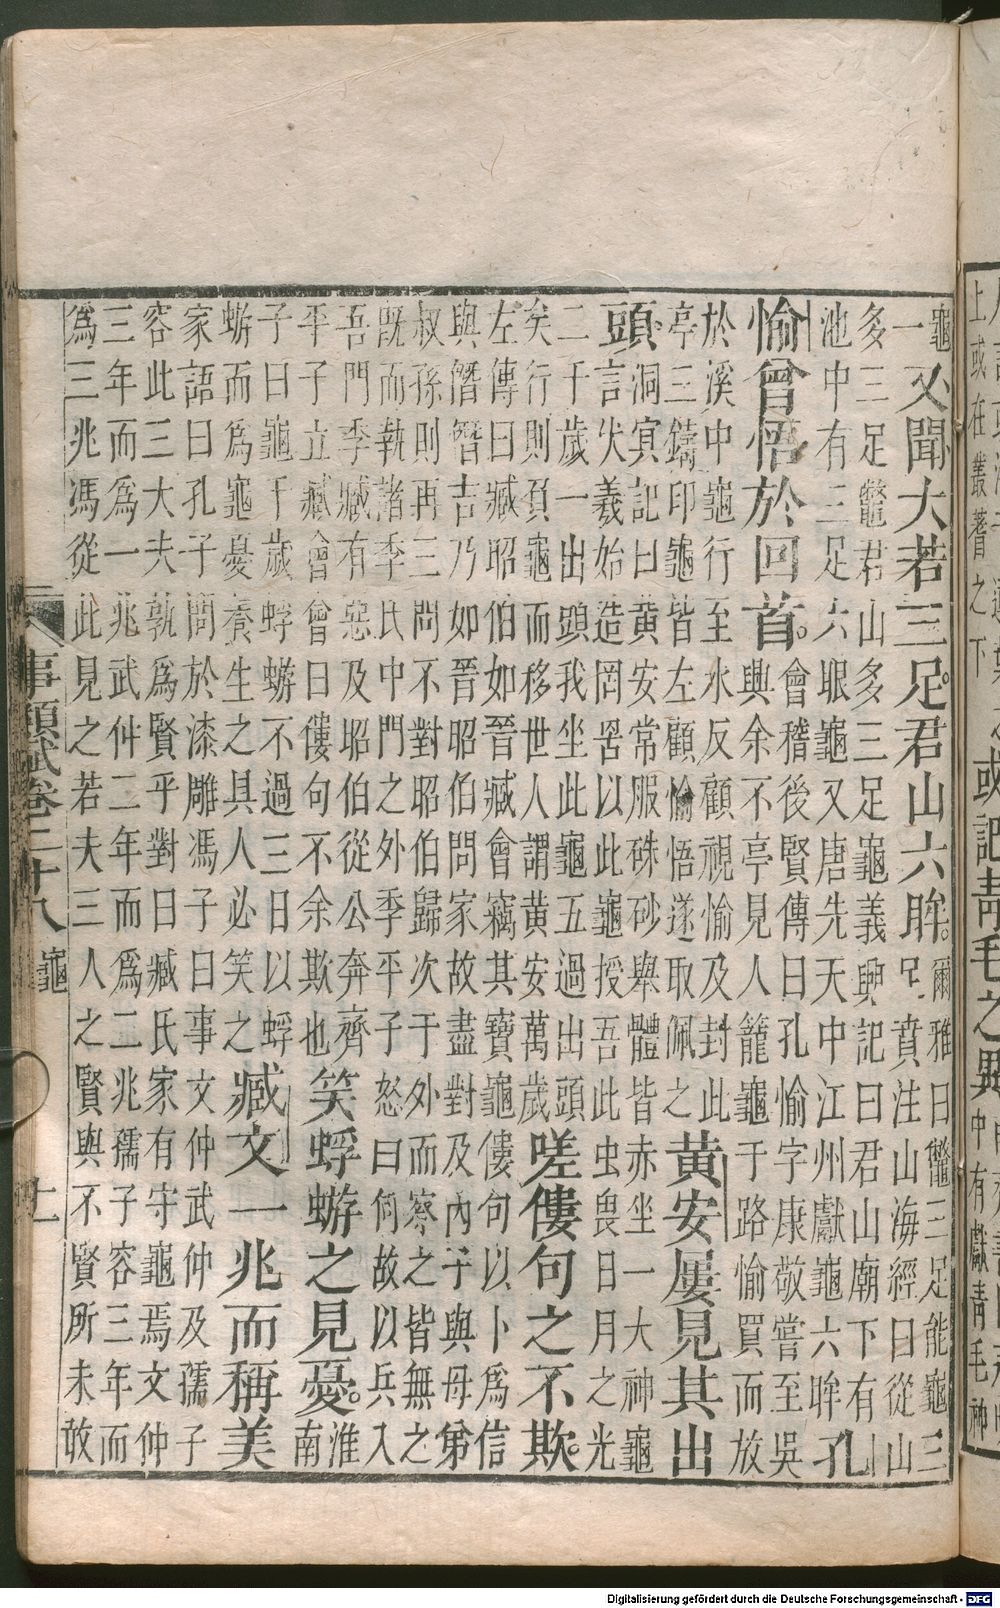 上或在叢蓍之下
或記青毛之異
中有獻青毛神
龜
一
又聞大若三足君山六眸。
爾雅曰鼈三足能龜三
足賁注山海經曰從山
多三足鼈君山多三足龜義興記曰君山廟下有
池中有三足六眼龜又唐先天中江州獻龜六眸
孔
愉曾悟於回首。
會稽後賢傳曰孔愉字康敬嘗至吳
興余不亭見人籠龜于路愉買而放
於溪中龜行至水反顧視愉及封此
亭三鑄印龜皆左顧愉悟遂取佩之
黃安屢見其出
頭。
洞冥記曰黃安常服硃砂舉體皆赤坐一大神龜
言伏羲始造罔罟以此龜授吾此虫畏日月之光
二千歲一出頭我坐此龜五過出頭
矣行則負龜而移世人謂黃安萬歲
嗟僂句之不欺。
左傳曰臧昭伯如晉臧會竊其寶龜僂句以卜爲信
與僭僭吉乃如晉昭伯問家故盡對及內子與母弟
叔孫則再三問不對昭伯歸次于外而察之皆無之
既而執諸季氏中門之外季平子怒曰何故以兵入
吾門季臧有惡及昭伯從公奔齊
平子立臧會會曰僂句不余欺也
笑蜉蝣之見憂。
淮
南
子曰龜千歲蜉蝣不過三日以蜉
蝣而爲龜憂養生之具人必笑之
臧文一兆而稱美
家語曰孔子問於漆雕馮子曰事文仲武仲及孺子
容此三大夫孰爲賢乎對曰臧氏家有守龜焉文仲
三年而爲一兆武仲二年而爲二兆孺子容三年而
爲三兆馮從此見之若夫三人之賢與不賢所未敢
事類賦卷二十八 龜 十一
Digitalisierung gefördert durch die Deutsche Forschungsgemeinschaft - DFG